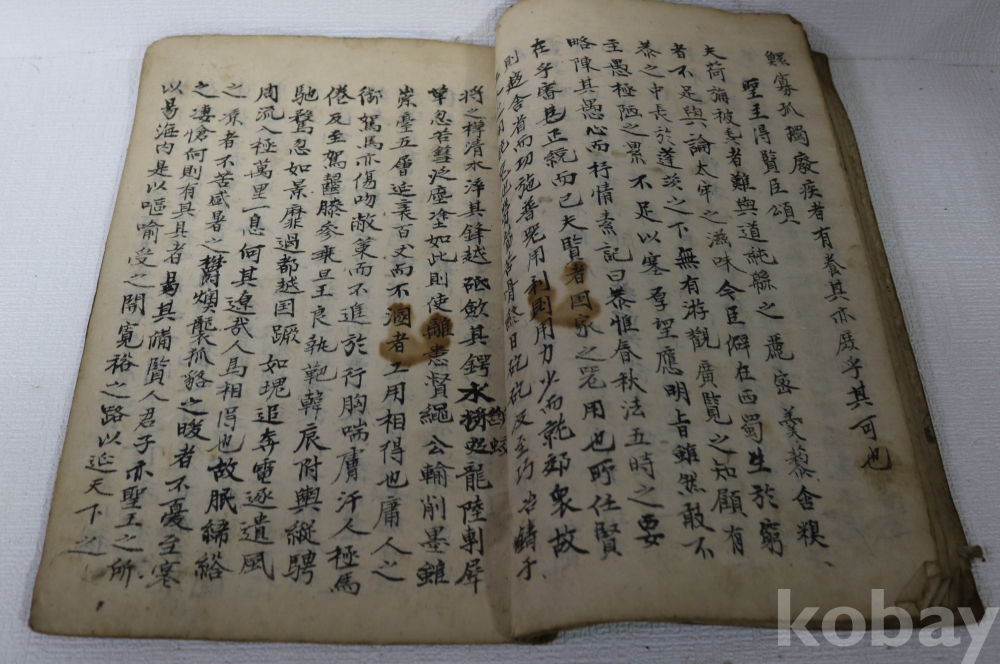 鰥寡孤獨廢疾者有養其亦庶乎其可也
聖王得賢臣頌
夫荷論被毳者難與道純綿之麗密羹藜舍糗
者不足與論太牢之滋味今臣僻在西蜀生於窮
巷之中長於蓬茨之下無有游觀廣覧之知顧有
至愚極陋之累不足以塞厚望應明旨雖然敢不
略陳其愚心而抒情素記曰恭惟春秋法五時之要
在乎審己正統而已夫賢者国家之器用也所任賢
則趍舍省而功施普器用利則用力少而就效衆故
骨終日矻矻及至巧冶鑄干
將之樸清水淬其鋒越砥歛其鍔水
龍陸剸犀
革忽若彗泛塵塗如此則使離婁督繩公輸削墨雖
崇臺五層延袤百丈而不溷者工用相得也庸人之
御駑馬亦傷吻敝策而不進於行胸喘膚汗人極馬
倦及至駕齧膝參乗旦王良執靶韓哀附輿縱騁
馳騖忽如景靡過都越国蹶如塊追奔電逐遺風
周流八極萬里一息何其遼哉人馬相得也故服絺綌
之凉者不苦盛暑之欝燠襲狐貉之暖者不憂至寒
之凄愴何則有其具者易其備賢人君子亦聖王之所
以易海内是以嘔喻受之開寬裕之路以延天下之
kobay